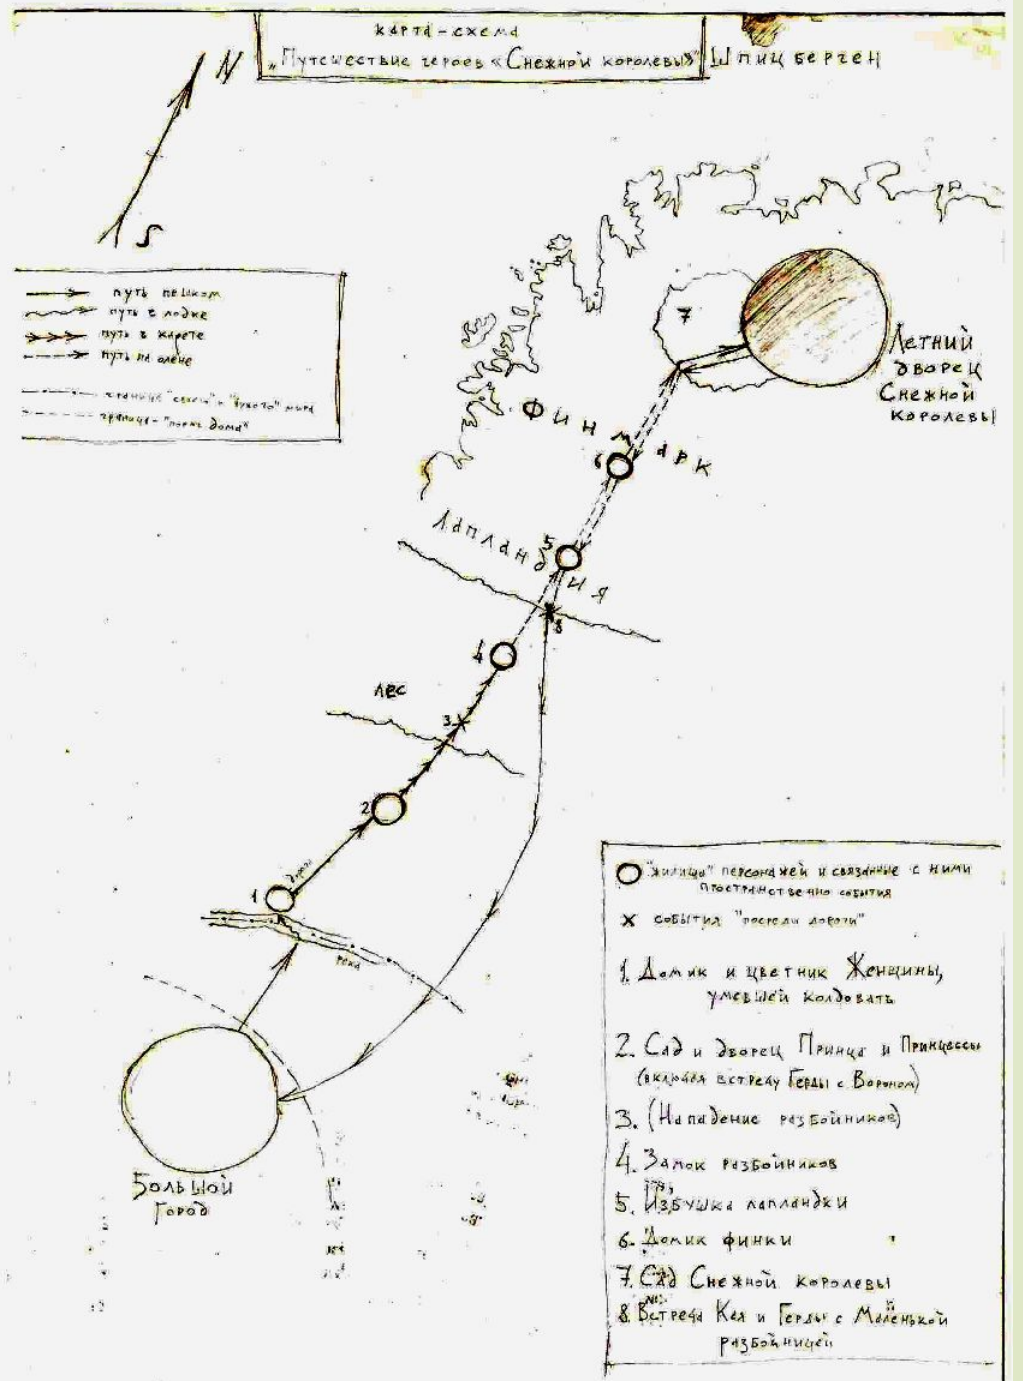 карта-схема
"Путешествие героев «Снежной королевы»"
Шпицберген
N
S
путь пешком
путь в лодке
путь в карете
путь на олене
граница "своего" и "чужого" мира
граница - "порог дома"
7
Летний
дворец
Снежной
королевы
Финмарк
6
Лапландия
5
8
4
лес
3
2
дорога
1
река
Большой
город
"жилища" персонажей и связанные с ними
пространственно события
х события "посреди дороги"
1. Домик и цветник Женщины,
умевшей колдовать
2. Сад и дворец Принца и Принцессы
(включая встречу Герды с Вороном)
3. (Нападение разбойников)
4. Замок разбойников
5. Избушка лапландки
6. Домик финки
7. Сад Снежной королевы
8. Встреча Кая и Герды с Маленькой
разбойницей